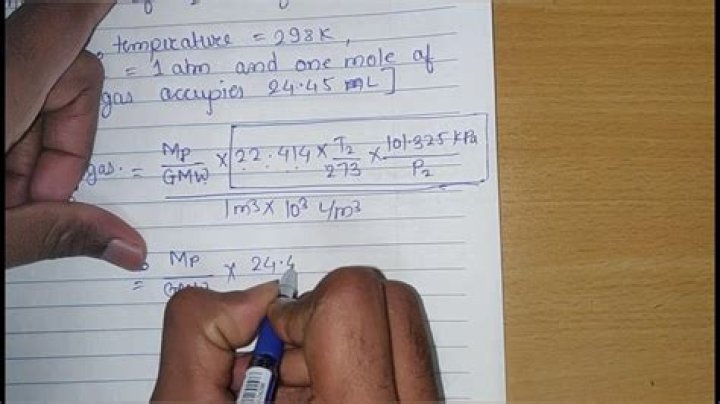 of
temperature = 298K,
= 1 atm and one mole of
gas occupies 24.45 mL]
gas. = Mp/GMW × 22.414 × T2/273 × 101.325 kPa/P2
1m³ × 10³ L/m³
= Mp × 24.4